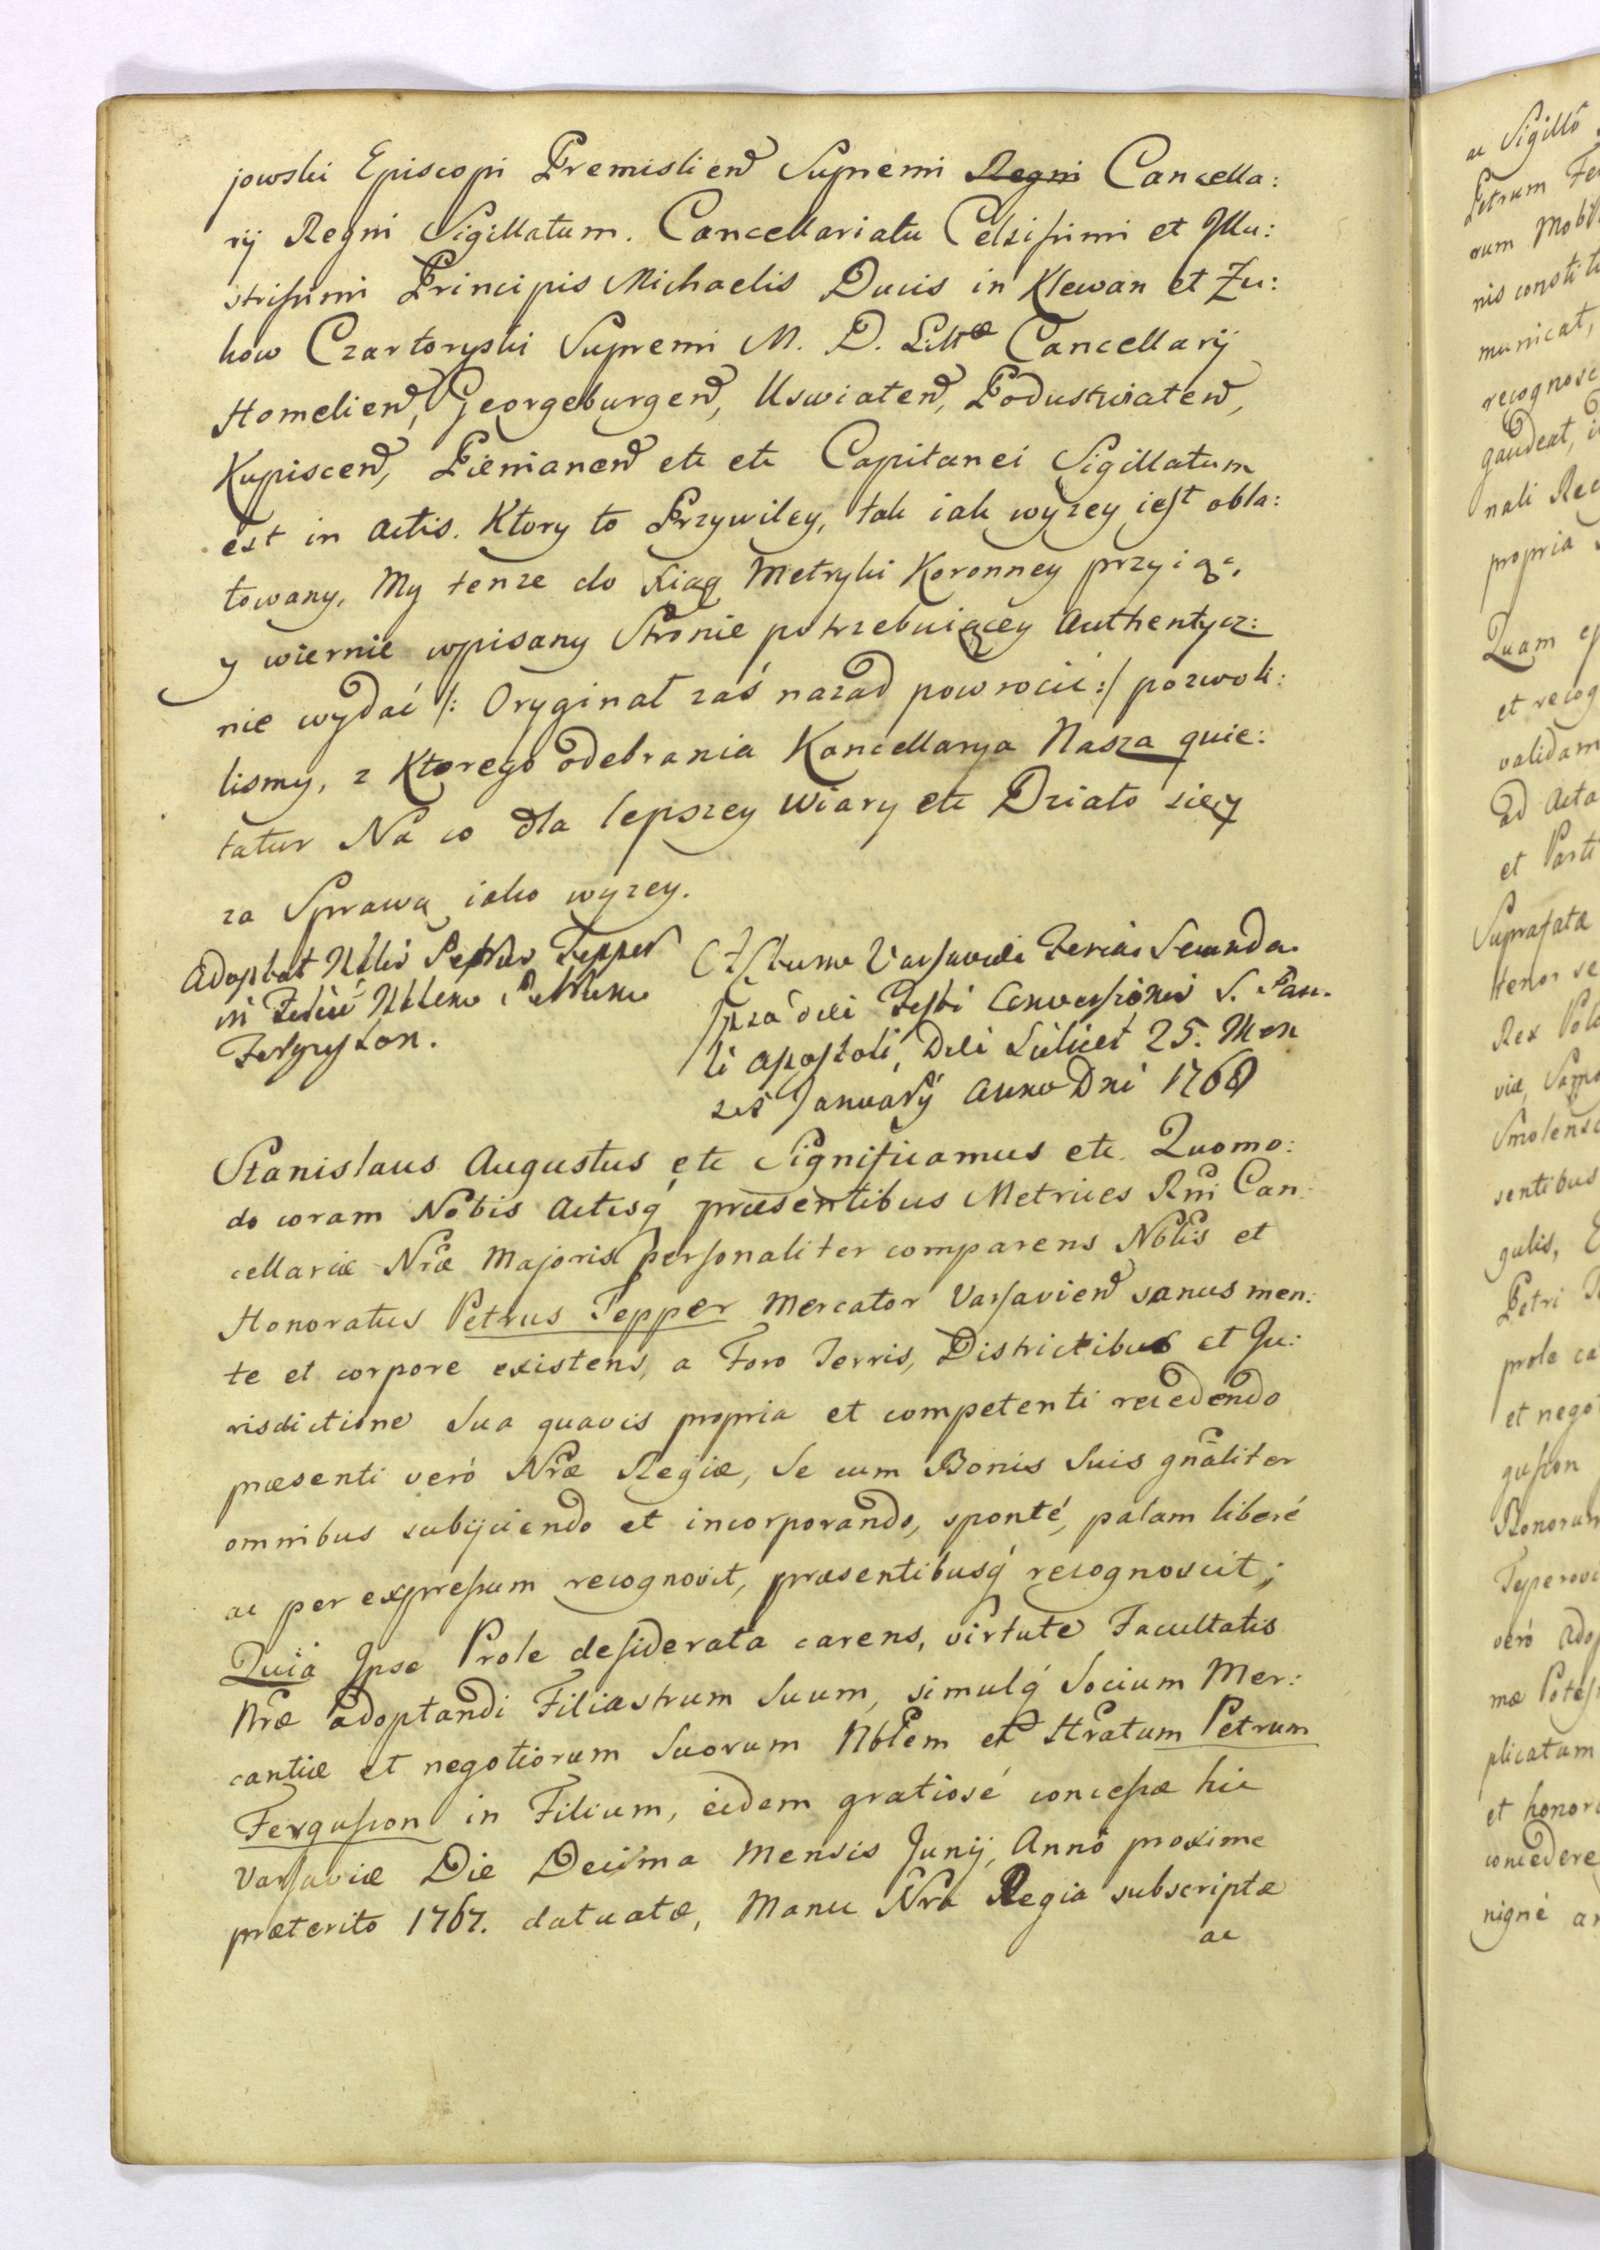 jowski Episcopi Premislien Supremi Regni Cancella:
rij Regni Sigillatum. Cancellariatu Celsissimi et Illu:
strissimi Principis Michaelis Ducis in Klewan et Zu:
kow Czartoryski Supremi M. D. Litt Cancellarij
Homelien, Georgeburgen, Uswiaten, Podustwiaten,
Kupiscen, Pienianen etc etc Capitanei Sigillatum
est in Actis. Ktory to Przywiley, tak iak wyzey iest obla:
towany, My tenze do Xiąg Metryki Koronney przyiąć,
y wiernie wpisany Stronie potrzebuiącey Authentycz:
nie wydać /: Oryginał zaś nazad powrocić :/ pozwoli:
lismy, z Ktorego odebrania Kancellarya Nasza quie:
tatur Na co dla lepszey Wiary etc Działo się y
za Sprawą iako wyzey.
Adoptat Nblis Petrus Tepper
in Filiū Nblem Petrum
Fergusson.
Actum Varsaviæ Feria Secunda
ipsa die Festi Conversionis S. Pau:
li Apostoli, Die Scilicet 25. Men
sis January Anno Dni 1768
Stanislaus Augustus etc Significamus etc. Quomo:
do coram Nobis Actisq́ præsentibus Metrices Rni Can:
cellariæ Nræ Majoris personaliter comparens Nblis et
Honoratus Petrus Tepper Mercator Varsavien sanus men:
te et corpore existens, a Foro Terris, Districtibus et Ju:
risdictione Sua quavis propria et competenti recedendo
præsenti veró Nræ Regiæ, Se cum Bonis Suis gnaliter
omnibus subijciendo et incorporando, sponté, palam liberé
ac per expressum recognovit, præsentibusq́ recognoscit;
Quia Ipse Prole desiderata carens, virtute Facultatis
Nræ adoptandi Filiastrum Suum, simulq́ Socium Mer:
cantiæ et negotiorum Suorum Nblem et Hratum Petrum
Fergusson in Filium, eidem gratiosé concessæ hic
Varsaviæ Die Decima Mensis Junij, Anno proxime
præterito 1767. datuatæ, Manu Nra Regia subscriptæ
ac
ac Sigillo
Petrum Fe
rum Mobil
nis constit
municat,
recognosc
gaudeat, i
nali Rec
propria
Quam
et recog
validam
ad Acta
et Parti
Suprafatæ
tenor se
Rex Polo
viæ, Samo
Smolensc
sentibus
gulis,
Petri T
prole ca
et negot
gusson
Bonorum
Teperov
veró ado
mæ Potes
plicatum
et honor
concedere
nigné an